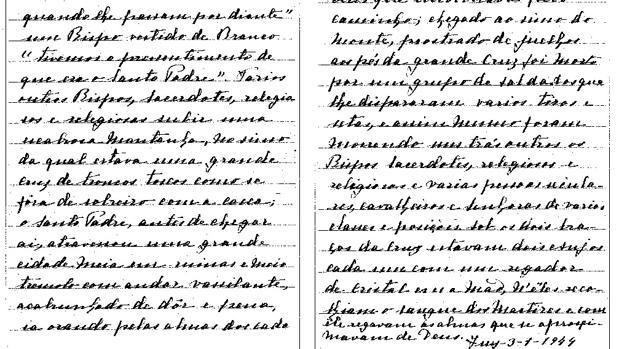 quando lhe passam por diante"
um Bispo vestido de Branco
"tivemos o pressentimento de
que era o Santo Padre". Varios
outros Bispos, Sacerdotes, religio
sos e religiosas subir uma
escabrosa Montanha, no simo
da qual estava uma grande
cruz de troncos toscos como se
fôra de sobreiro com a casca;
o Santo Padre, antes de chegar
aí, atravessou uma grande
cidade meia em ruinas e meio
tremulo com andar vacilante,
acabrunhado de dôr e pena,
ia orando pelas almas dos cada
caminho; chegado ao simo do
monte, prostrado de juelhos
aos pés da grande Cruz foi morto
por um grupo de soldados que
lhe dispararam varios tiros e
setas, e assim mesmo foram
morrendo uns trás outros os
Bispos Sacerdotes, religiosos e
religiosas e varias pessoas secula
res, cavalheiros e senhoras de varias
classes e posições. Sob os dois bra
ços da Cruz estavam dois Anjos
cada um com um regador
de cristal em a mão, n'êles reco
lhiam o sangue dos Martires e com
êle regavam as almas que se aproxi
mavam de Deus.
Tuy-3-1-1944